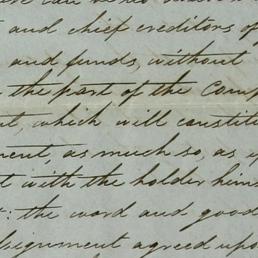 and chief creditors of
and funds, without
the part of the Comp
t, which will constitu
ment, as much so, as
t with the holder him
t: the word and good
ssignment agreed upo